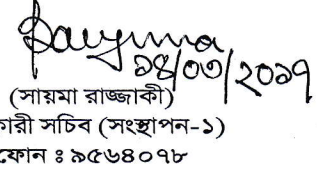 Sayma
১৪/০৩/২০১৭
(সায়মা রাজ্জাকী)
কারী সচিব (সংস্থাপন-১)
ফোন ঃ ৯৫৬৪০৭৮